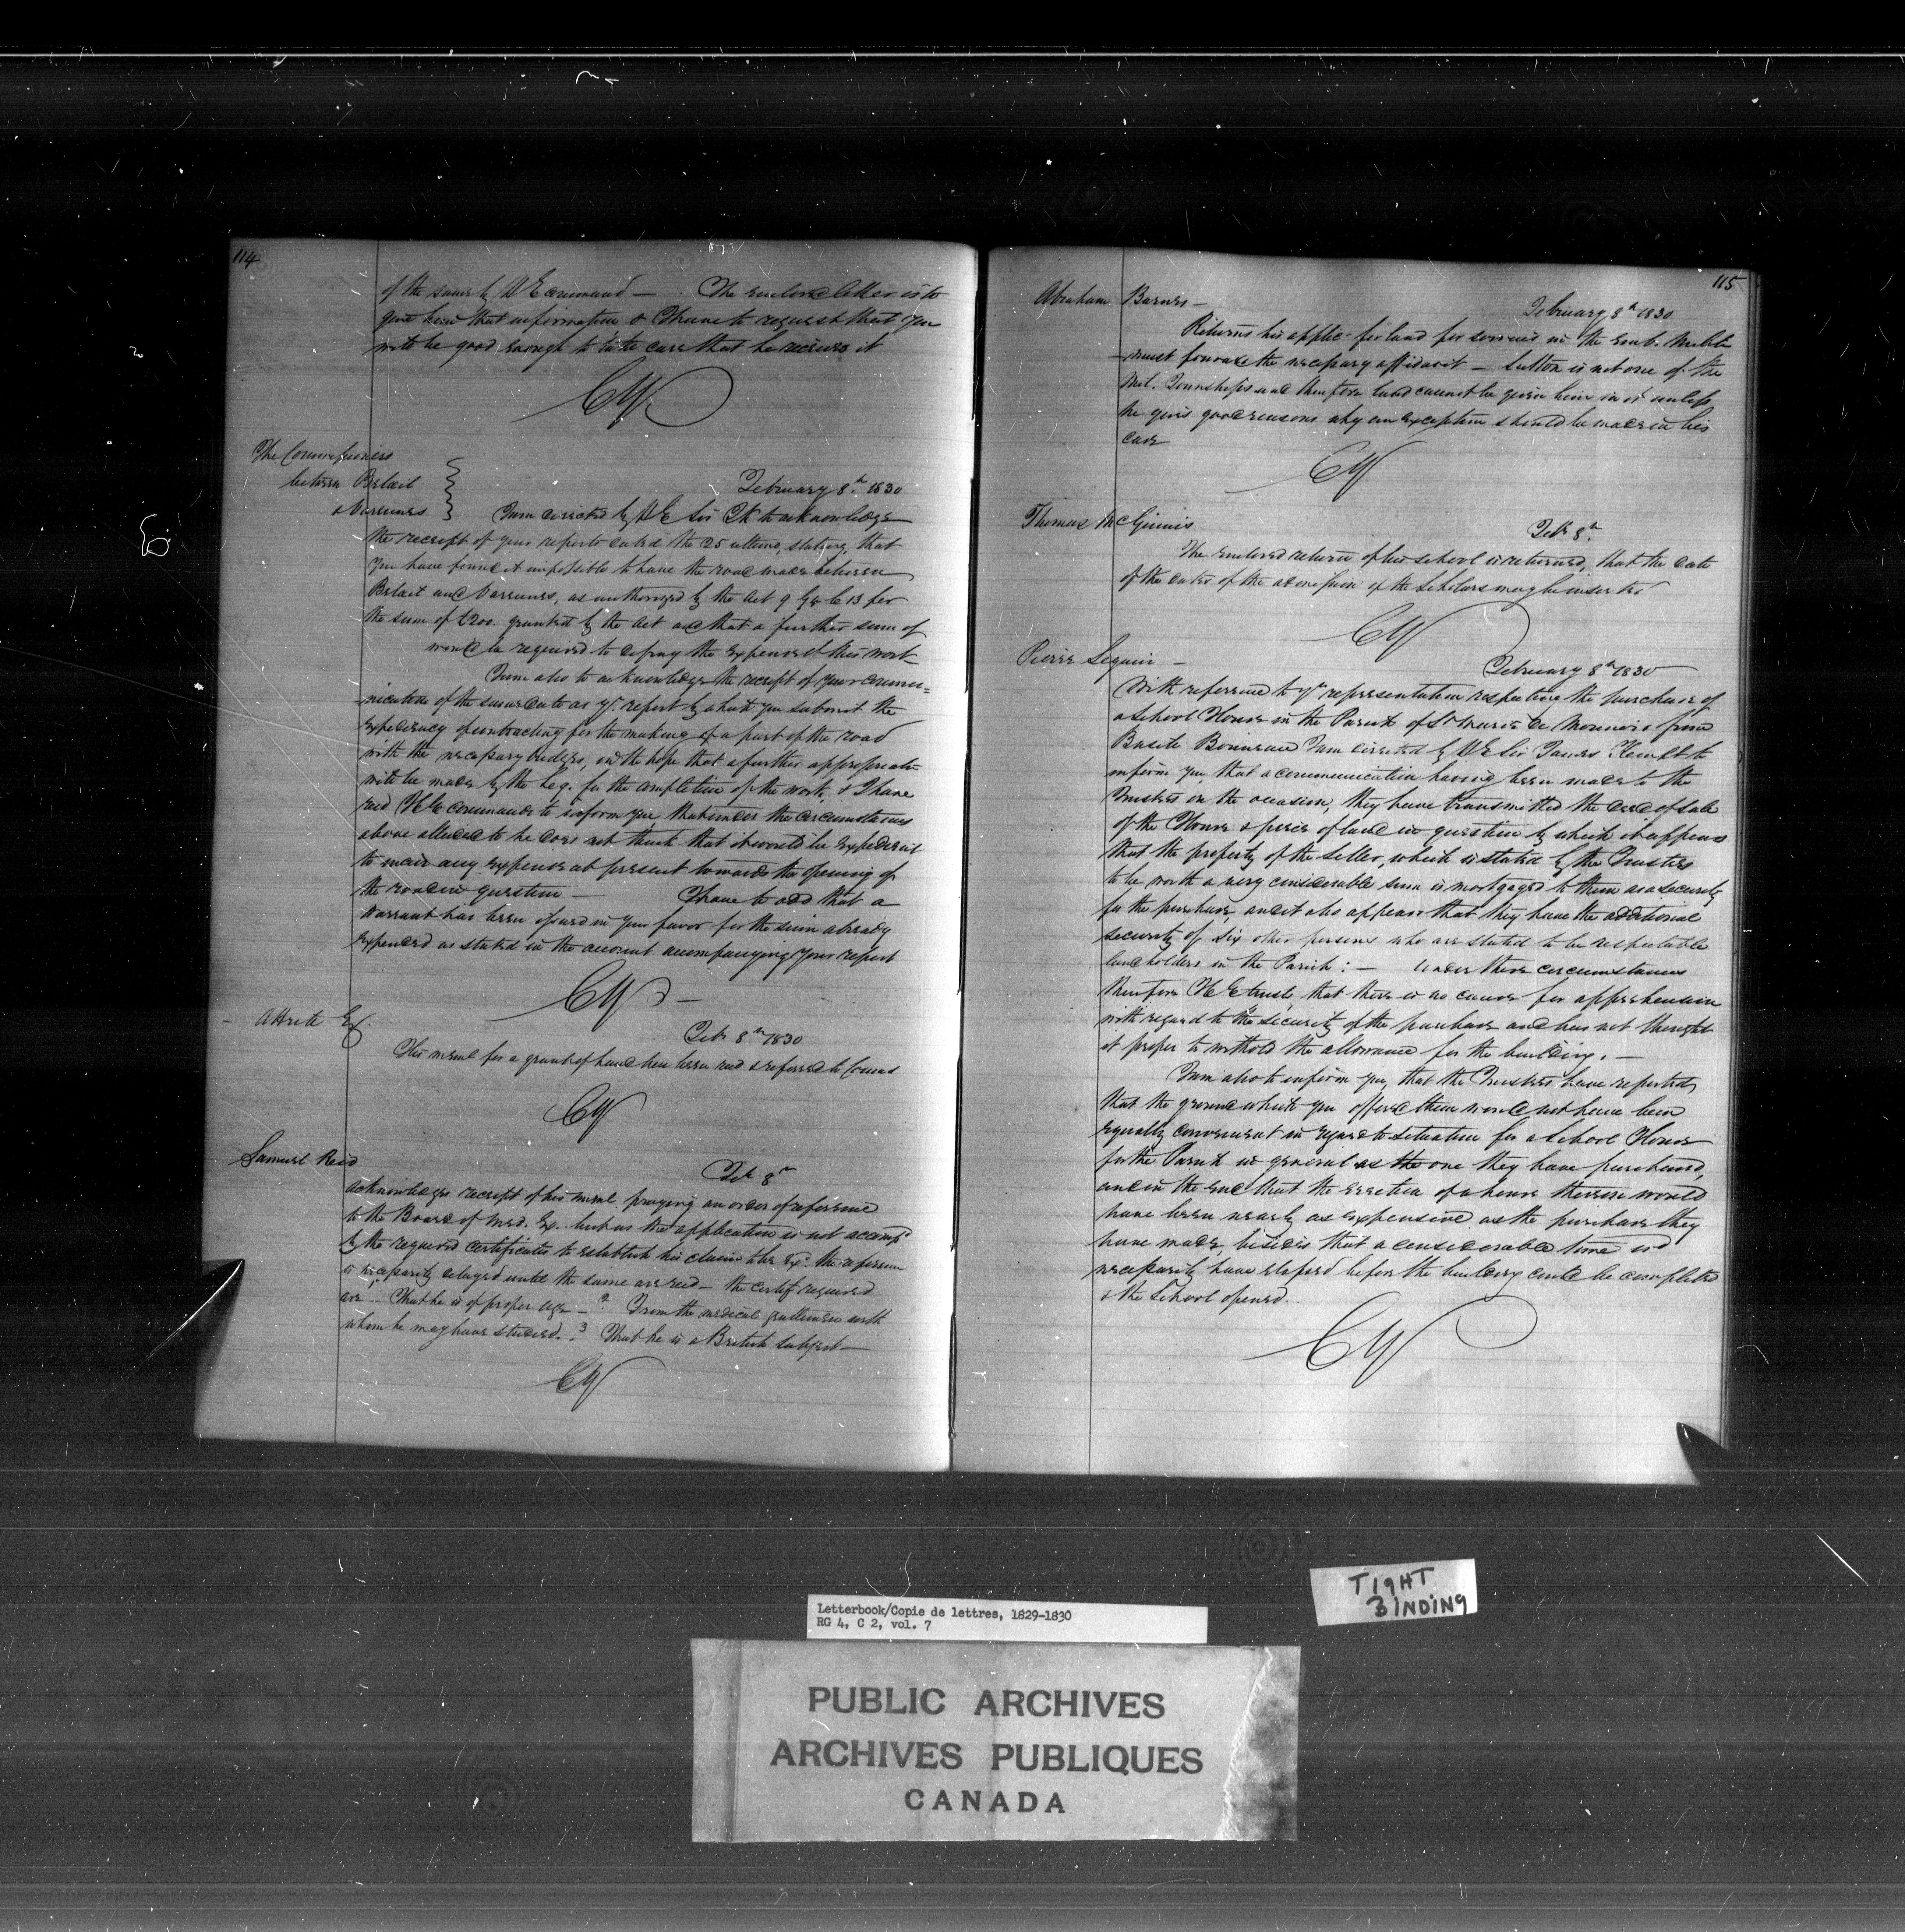 114
of the same by H E command — The enclosed letter is to
give him that information & I have to request that you
will be good enough to take care that he receives it
CY
The Commissioners
between Belœil
& Varennes
February 8th. 1830
I am directed by H E Sir JK to acknowledge
the receipt of your reports dated the 25 ultimo, stating, that
you have found it impossible to have the road made between
Belœil and Varennes, as authorized by the Act 9 C 13 for
the sum of £200. granted by the Act and that a further sum of
would be required to defray the expense of this work
I am also to acknowledge the receipt of your commu=
nication of the same date as yr. report by which you submit the
expediency of contracting for the making of a part of the road
with the necessary bridges, in the hope that a further appropriatn
will be made by the Leg. for the completion of the work, & I have
recd H E commands to inform you, that under the circumstances
above alluded to he does not think that it would be expedient
to incur any expense at present towards the opening of
the road in question — I have to add that a
Warrant has been issued in your favor for the sum already
expended as stated in the account accompanying your report
CY
Feb 8th 1830
His meml for a grant of land has been recd & referred to Counc
CY
Samuel Reid
Feb 8th
Acknowledges receipt of his meml. praying an order of reference
to the Board of Med. Ex. but as the application is not accompd
by the required certificates to establish his claim the reference
is necessarily delayed until the same are recd — the certif required
are 1st That he is of proper age — 2. From the medical gentleman with
whom he may have studied. 3 That he is a British subject —
CY
115
Abraham Barnes —
February 8th 1830
Returns his applic. for land for services in the Militia
must forward the necessary affidavit — Sutton is not one of the
Mil. Townships and therefore land cannot be given him in it unless
he gives good reasons why an exception should be made in his
case
CY
Thomas McGinnis
Feb 8th.
The enclosed return of his school is returned, that the date
of the dates of the admission of the Scholars may be inserted
CY
Pierre Seguin —
February 8th 1830
With reference to yr representation respecting the purchase of
a School House in the Parish of St from
Basile I am directed by H E Sir James Kempt to
inform you, that a communication having been made to the
Trustees on the occasion, they have transmitted the deed of sale
of the House & piece of land in question by which it appears
that the property of the Seller, which is stated by the Trustees
to be worth a very considerable sum is mortgaged to them as a security
for the purchase, and it also appears that they have the additional
security of six other persons who are stated to be respectable
landholders in the Parish: — Under these circumstances
therefore H E trusts, that there is no cause for apprehension
with regard to the security of the purchase and has not thought
it proper to withold the allowance for the building. —
I am also to inform you, that the Trustees have reported,
that the ground which you offered them would not have been
equally convenient in regard to situation for a School House
for the Parish in general as the one they have purchased,
and in the end that the erection of a house thereon would
have been nearly as expensive as the purchase they
have made, besides that a considerable time wd
necessarily have elapsed before the building could be completed
& the School opened.
CY
TIGHT
BINDING
Letterbook/Copie de lettres, 1829-1830
RG 4, C 2, vol. 7
PUBLIC ARCHIVES
ARCHIVES PUBLIQUES
CANADA